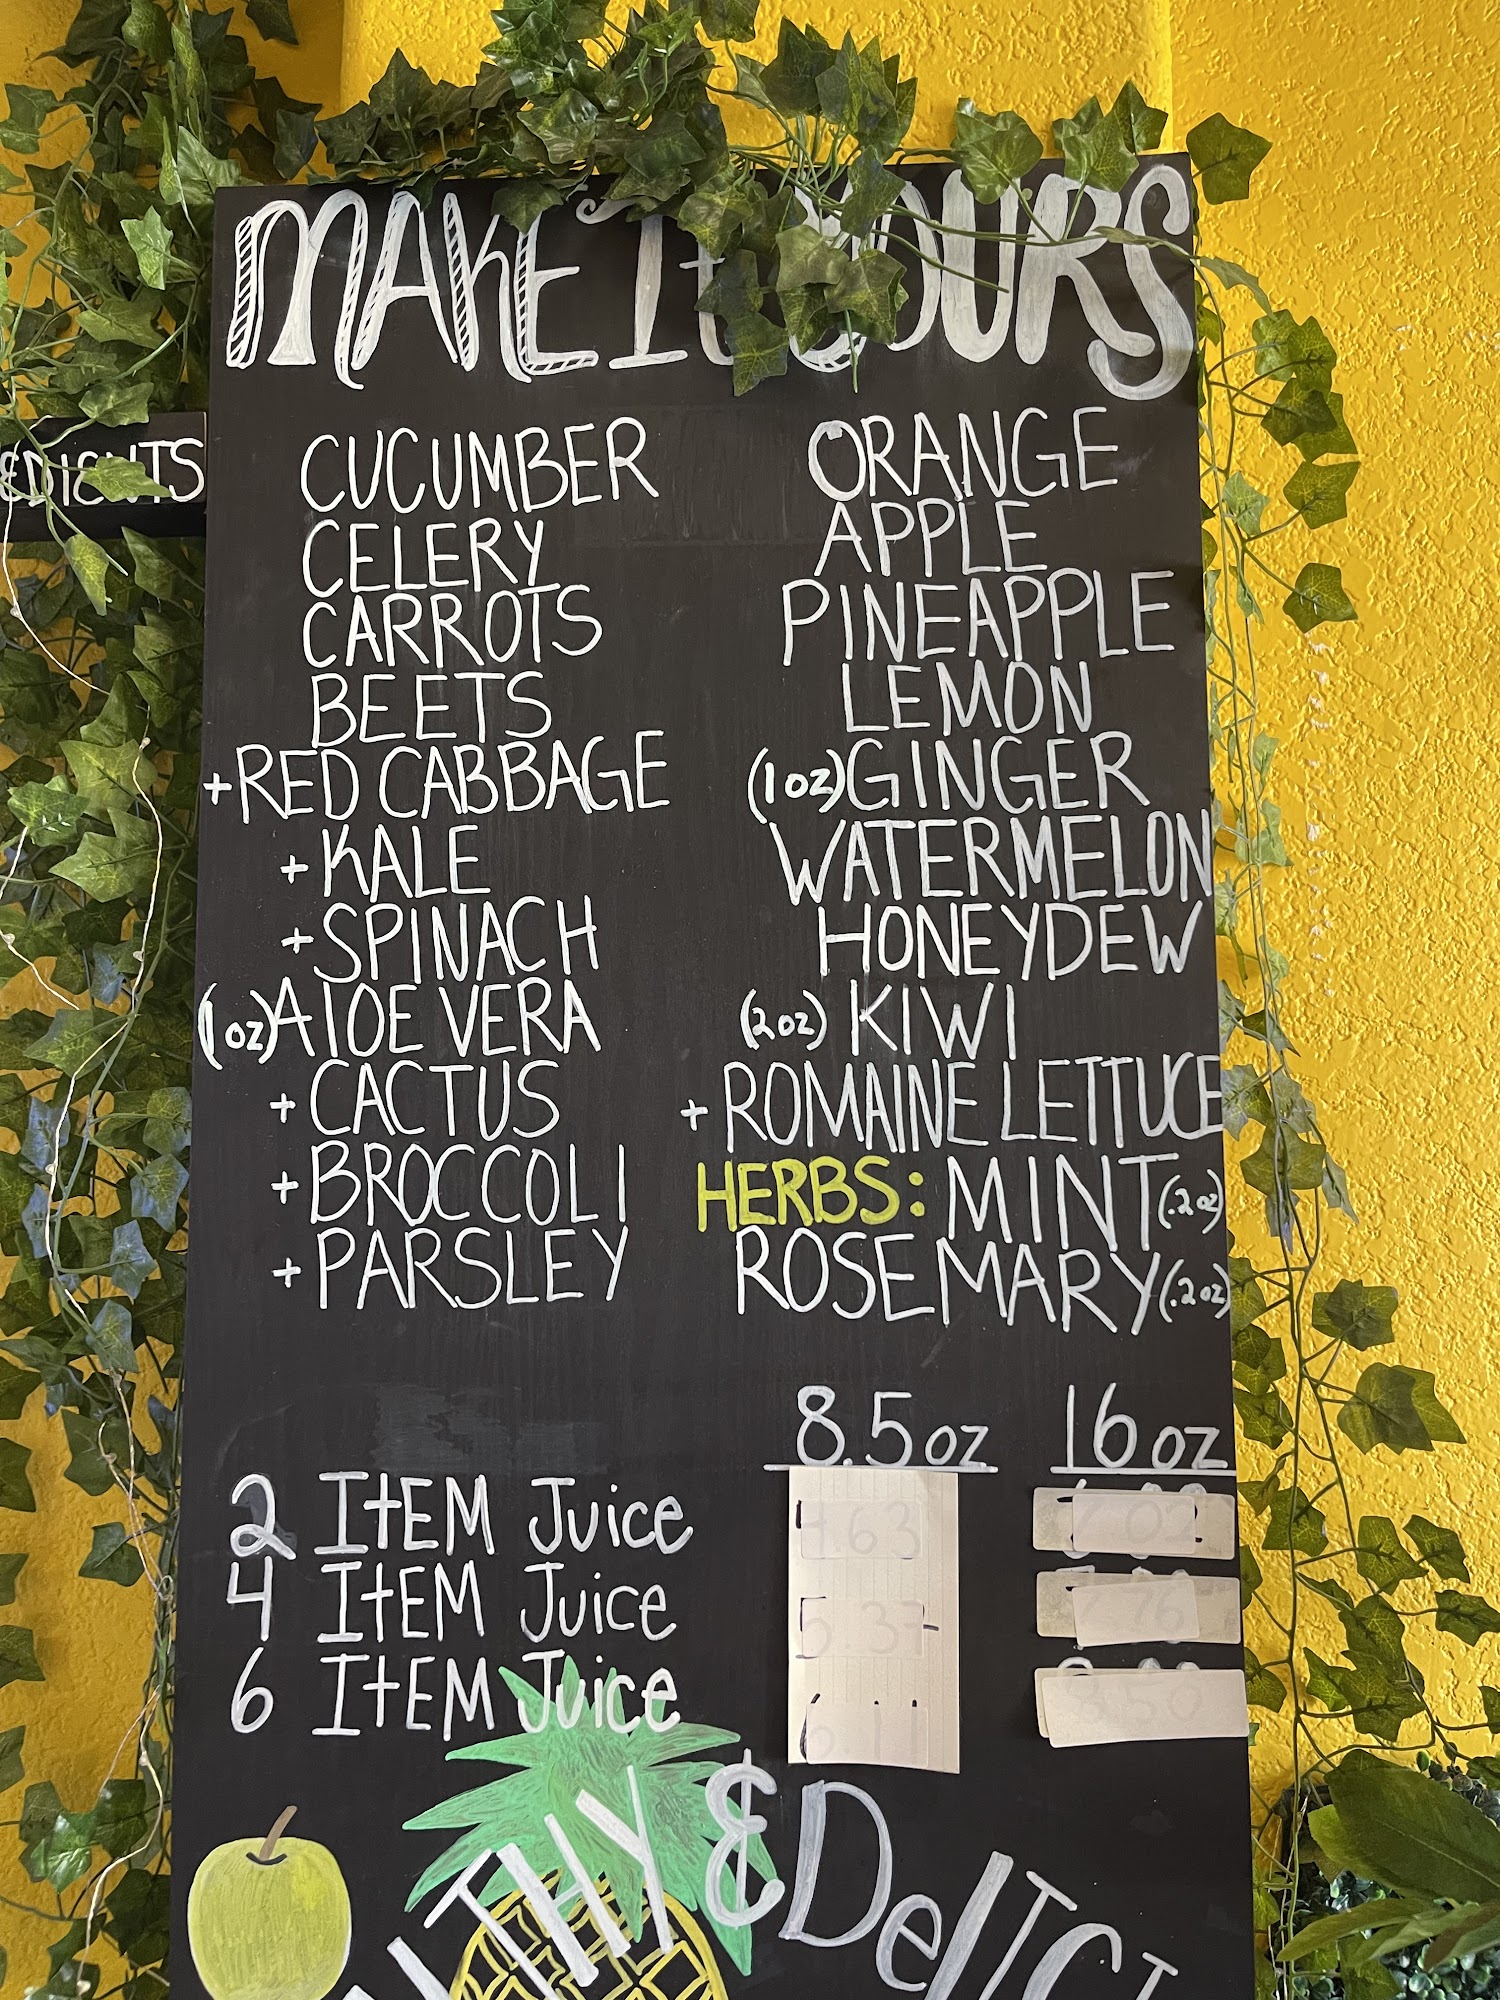 MAKE It YOURS
CUCUMBER
CELERY
CARROTS
BEETS
+RED CABBAGE
+KALE
+SPINACH
(1oz)AlOE VERA
+CACTUS
+BROCCOLI
+PARSLEY
ORANGE
APPLE
PINEAPPLE
LEMON
(1oz)GINGER
WATERMELON
HONEYDEW
(2oz) KIWI
+ROMAINE LETTUCE
HERBS: MINT(.2oz)
ROSEMARY(.2oz)
8.5oz 16oz
2 ItEM Juice 4.63
4 ItEM Juice 5.37 7.76
6 ItEM Juice 6.11 8.50
&